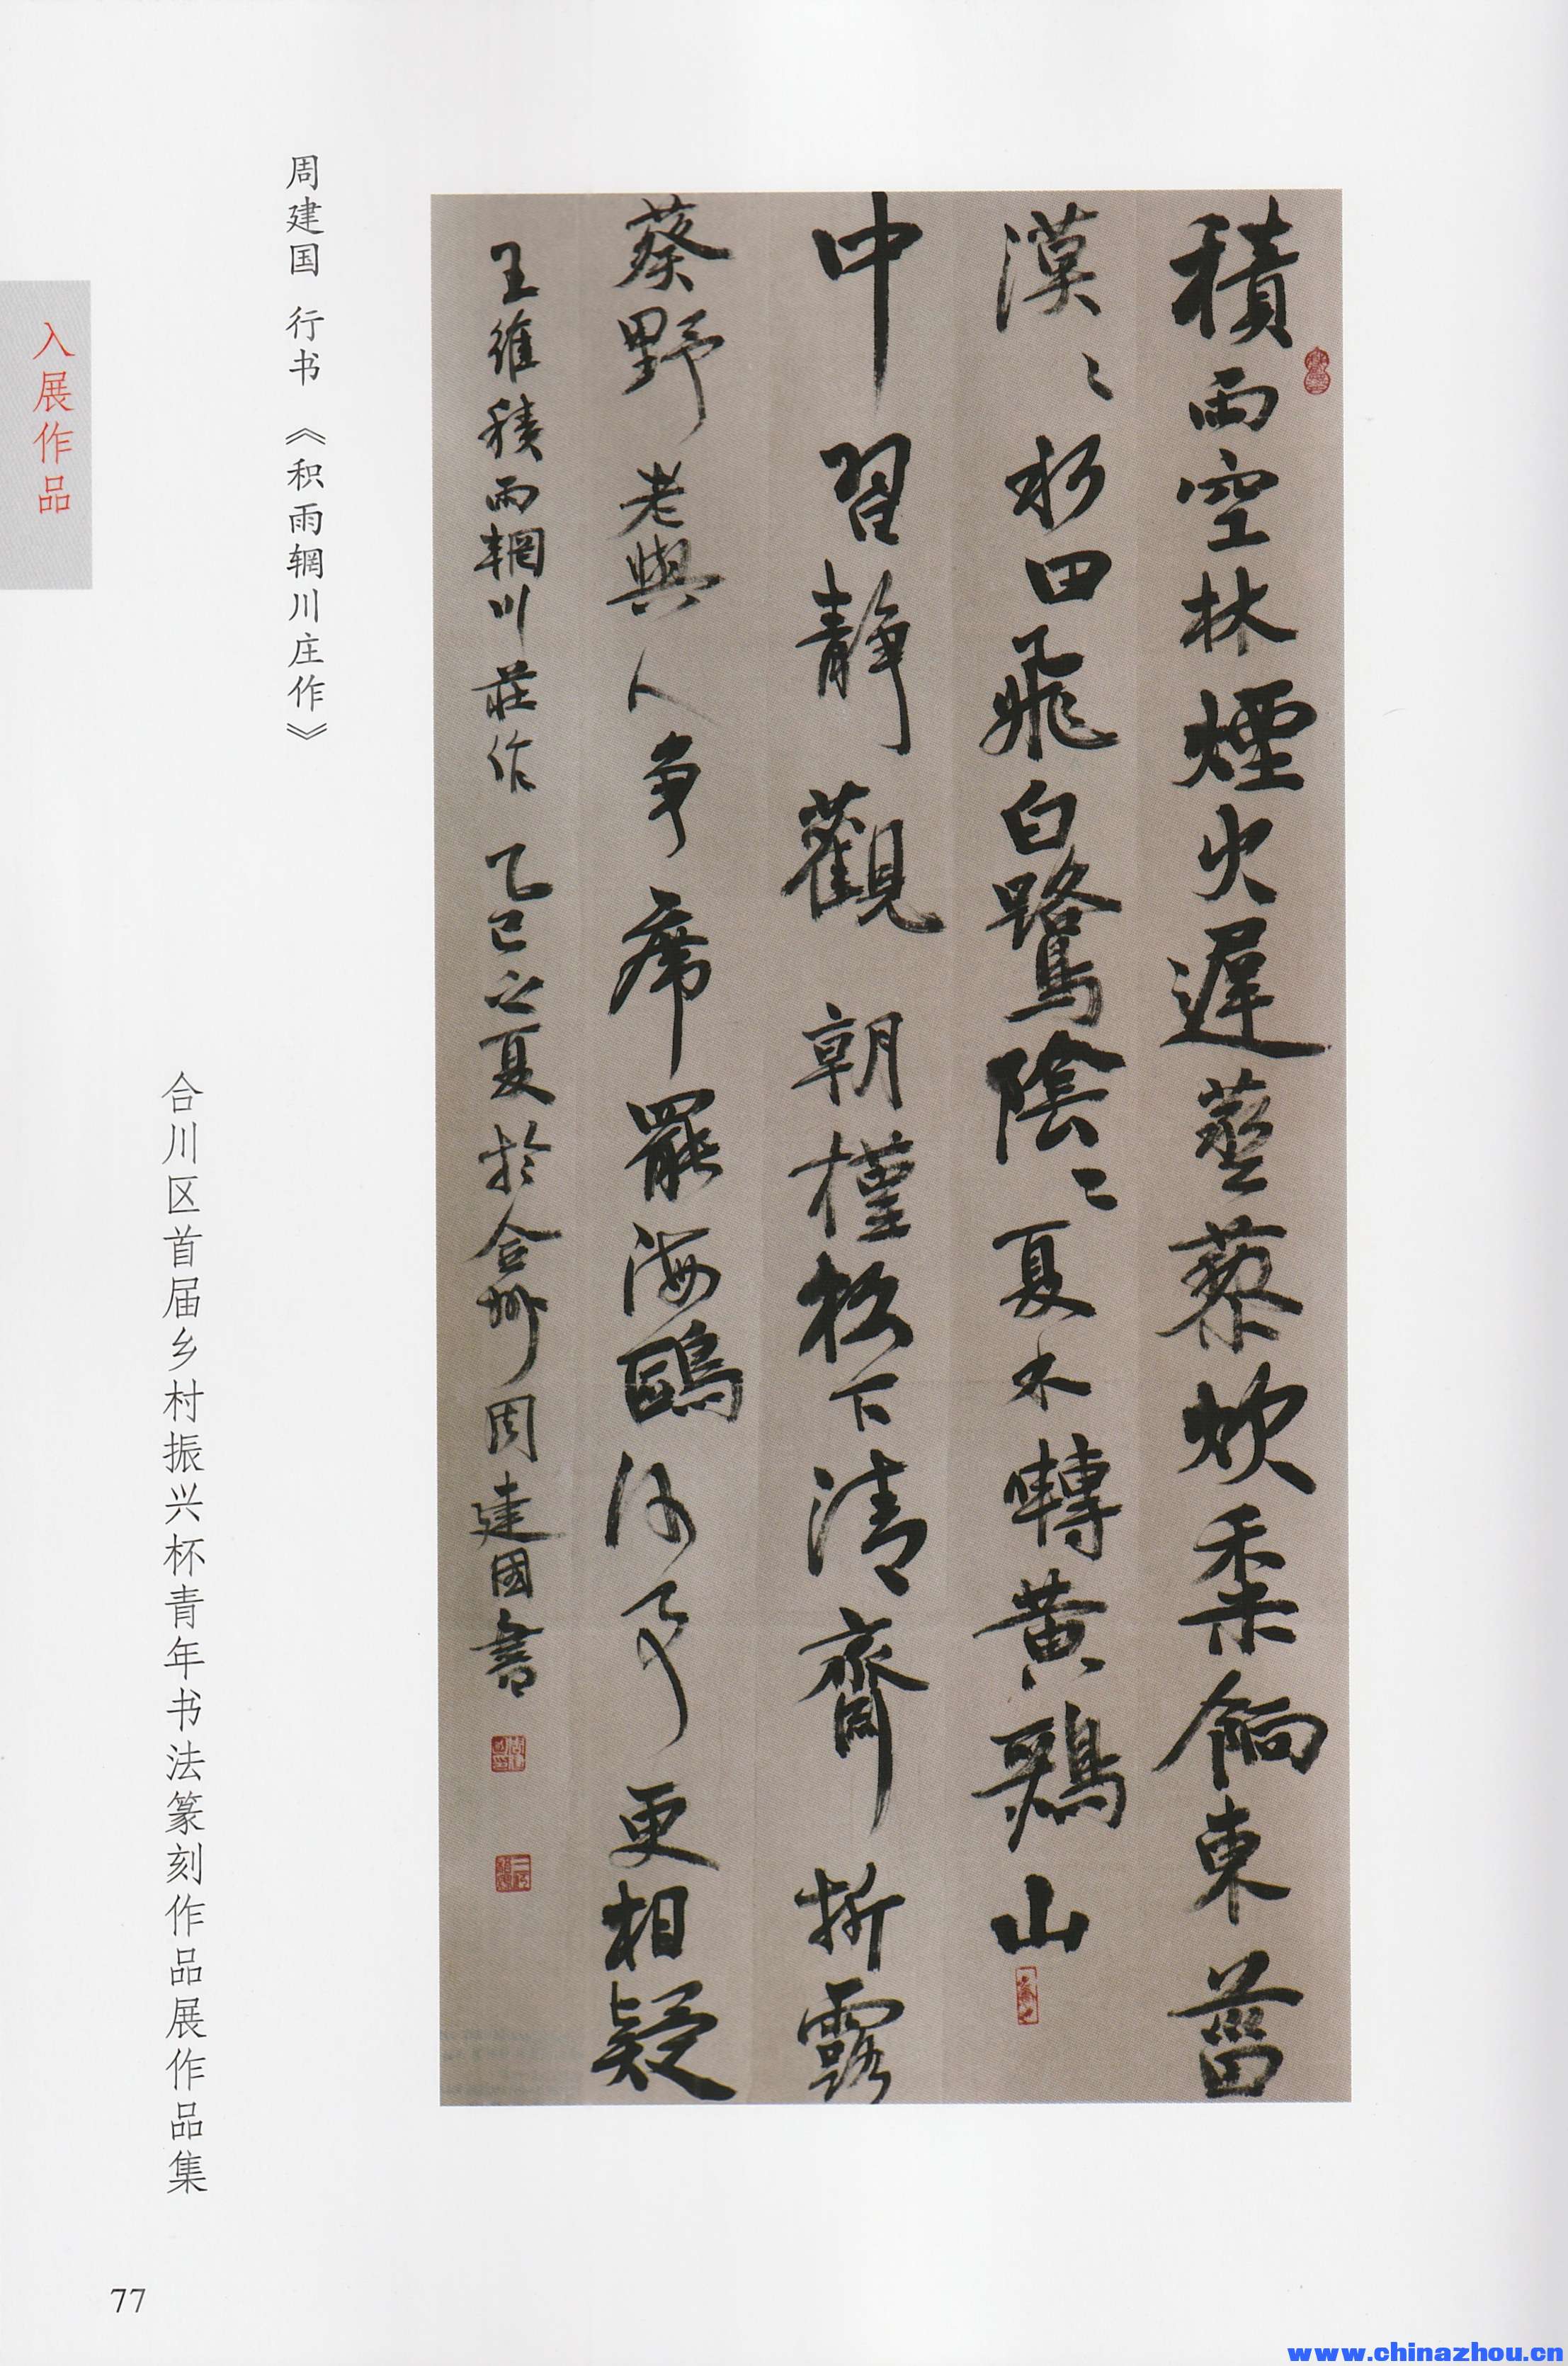 積雨空林煙火遲蒸藜炊黍餉東菑
漠〻水田飛白鷺陰〻夏木囀黃鸝山
中習靜觀朝槿松下清齋折露
葵野老與人争席罷海鷗何事更相疑
王維積雨輞川莊作 乙巳之夏於合州周建國書
周建国 行书 《积雨辋川庄作》
合川区首届乡村振兴杯青年书法篆刻作品展作品集
入展作品
77
www.chinazhou.cn